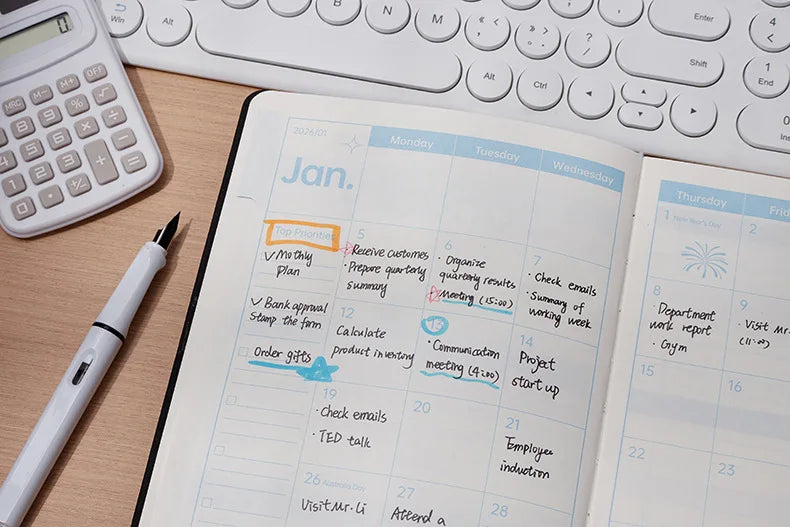 Win
Alt
B
N
M
Enter
Shift
Alt
Ctrl
End
0
OFF
MRC
M-
M+
2026/01
Jan.
Monday
Tuesday
Wednesday
Thursday
Top Priorities
✓ Mothly
Plan
✓ Bank approval
Stamp the form
Order gifts
1 New Year's Day
2
5
· Receive customes
· Prepore quarterly
summary
6
· Organize
quarterly results
· Meeting (15:00)
7
· Check emails
· Summary of
working week
8
· Department
work report
· Gym
9
· Visit Mr.
(11:00)
12
Calculate
product inventory
13
· Communication
meeting (4:00)
14
Project
start up
15
16
19
· Check emails
· TED talk
20
21
Employee
induction
22
23
26 Australia Day
Visit Mr. Li
27
Attend a
28